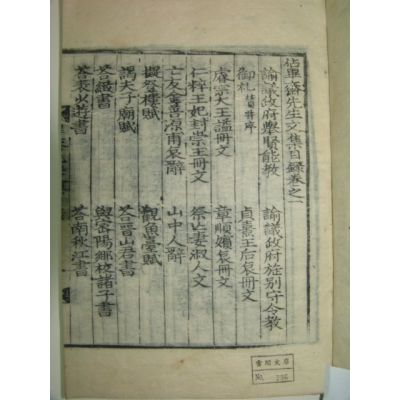 佔畢齋先生文集目錄卷之一
諭議政府擧賢能敎　諭議政府旌別守令敎
御札賛并序　貞熹王后哀冊文
睿宗大王諡冊文　章順嬪哀冊文
仁粹王妃封崇王冊文　祭亡妻淑人文
亡友金善源甫哀辭　山中人辭
擬登樓賦　觀魚臺賦
謁夫子廟賦　答晉山君書
答緻書　與密陽鄕校諸子書
答裵書　答南秋江書
文庫
No.